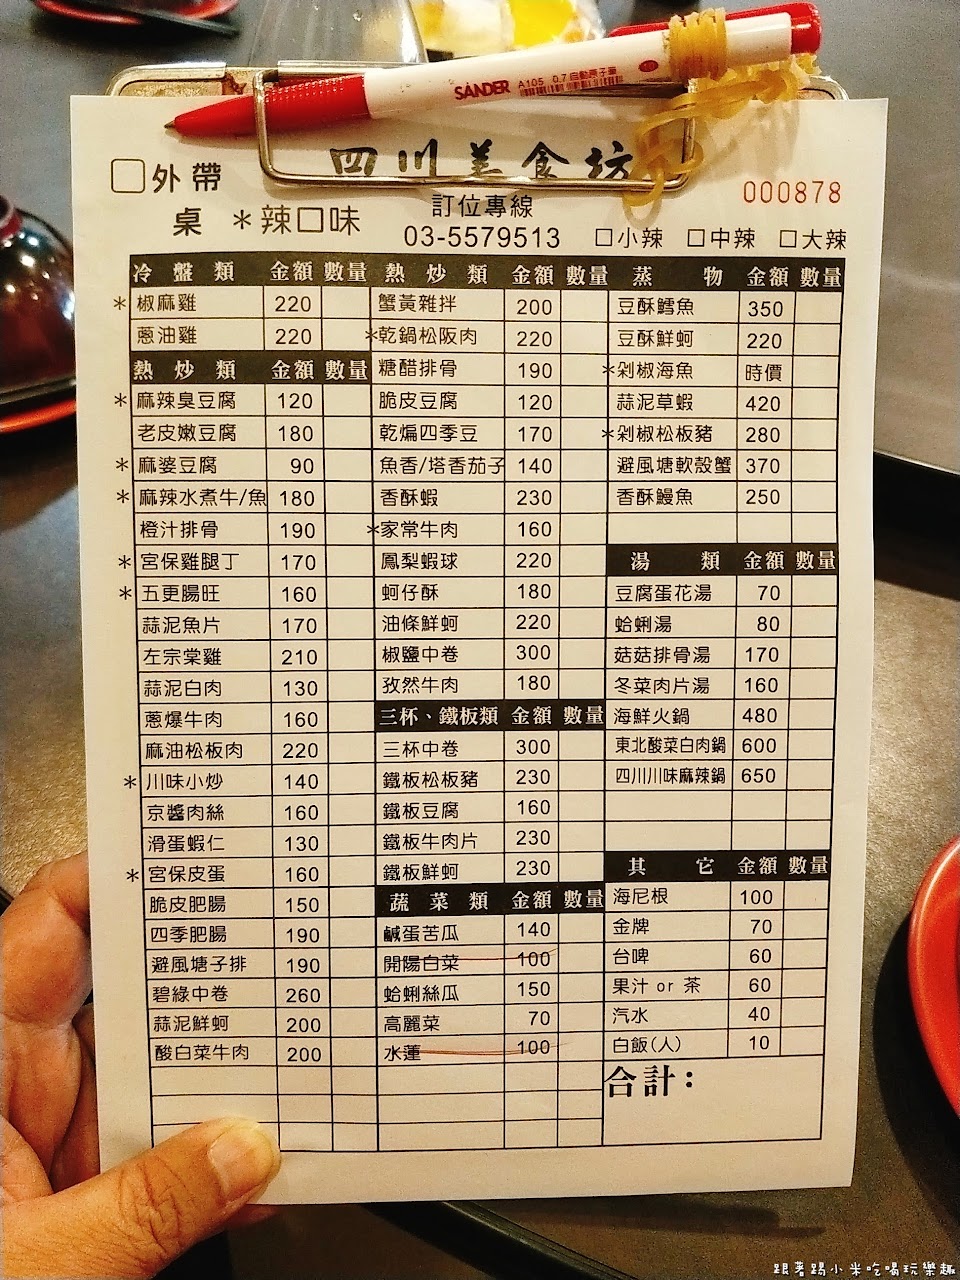 SANDER A105 0.7 自動原子筆
四川美食坊
000878
□外帶
訂位專線
桌 *辣口味
03-5579513 □小辣 □中辣 □大辣
冷盤類 金額 數量
*椒麻雞 220
蔥油雞 220
熱炒類 金額 數量
*麻辣臭豆腐 120
老皮嫩豆腐 180
*麻婆豆腐 90
*麻辣水煮牛/魚 180
橙汁排骨 190
*宮保雞腿丁 170
*五更腸旺 160
蒜泥魚片 170
左宗棠雞 210
蒜泥白肉 130
蔥爆牛肉 160
麻油松板肉 220
*川味小炒 140
京醬肉絲 160
滑蛋蝦仁 130
*宮保皮蛋 160
脆皮肥腸 150
四季肥腸 190
避風塘子排 190
碧綠中卷 260
蒜泥鮮蚵 200
酸白菜牛肉 200
熱炒類 金額 數量
蟹黃雜拌 200
*乾鍋松阪肉 220
糖醋排骨 190
脆皮豆腐 120
乾煸四季豆 170
魚香/塔香茄子 140
香酥蝦 230
*家常牛肉 160
鳳梨蝦球 220
蚵仔酥 180
油條鮮蚵 220
椒鹽中卷 300
孜然牛肉 180
三杯、鐵板類 金額 數量
三杯中卷 300
鐵板松板豬 230
鐵板豆腐 160
鐵板牛肉片 230
鐵板鮮蚵 230
蔬菜類 金額 數量
鹹蛋苦瓜 140
開陽白菜 100
蛤蜊絲瓜 150
高麗菜 70
水蓮 100
蒸物 金額 數量
豆酥鱈魚 350
豆酥鮮蚵 220
*剁椒海魚 時價
蒜泥草蝦 420
*剁椒松板豬 280
避風塘軟殼蟹 370
香酥鰻魚 250
湯類 金額 數量
豆腐蛋花湯 70
蛤蜊湯 80
菇菇排骨湯 170
冬菜肉片湯 160
海鮮火鍋 480
東北酸菜白肉鍋 600
四川川味麻辣鍋 650
其它 金額 數量
海尼根 100
金牌 70
台啤 60
果汁 or 茶 60
汽水 40
白飯(人) 10
合計：
跟著踢小米吃喝玩樂趣